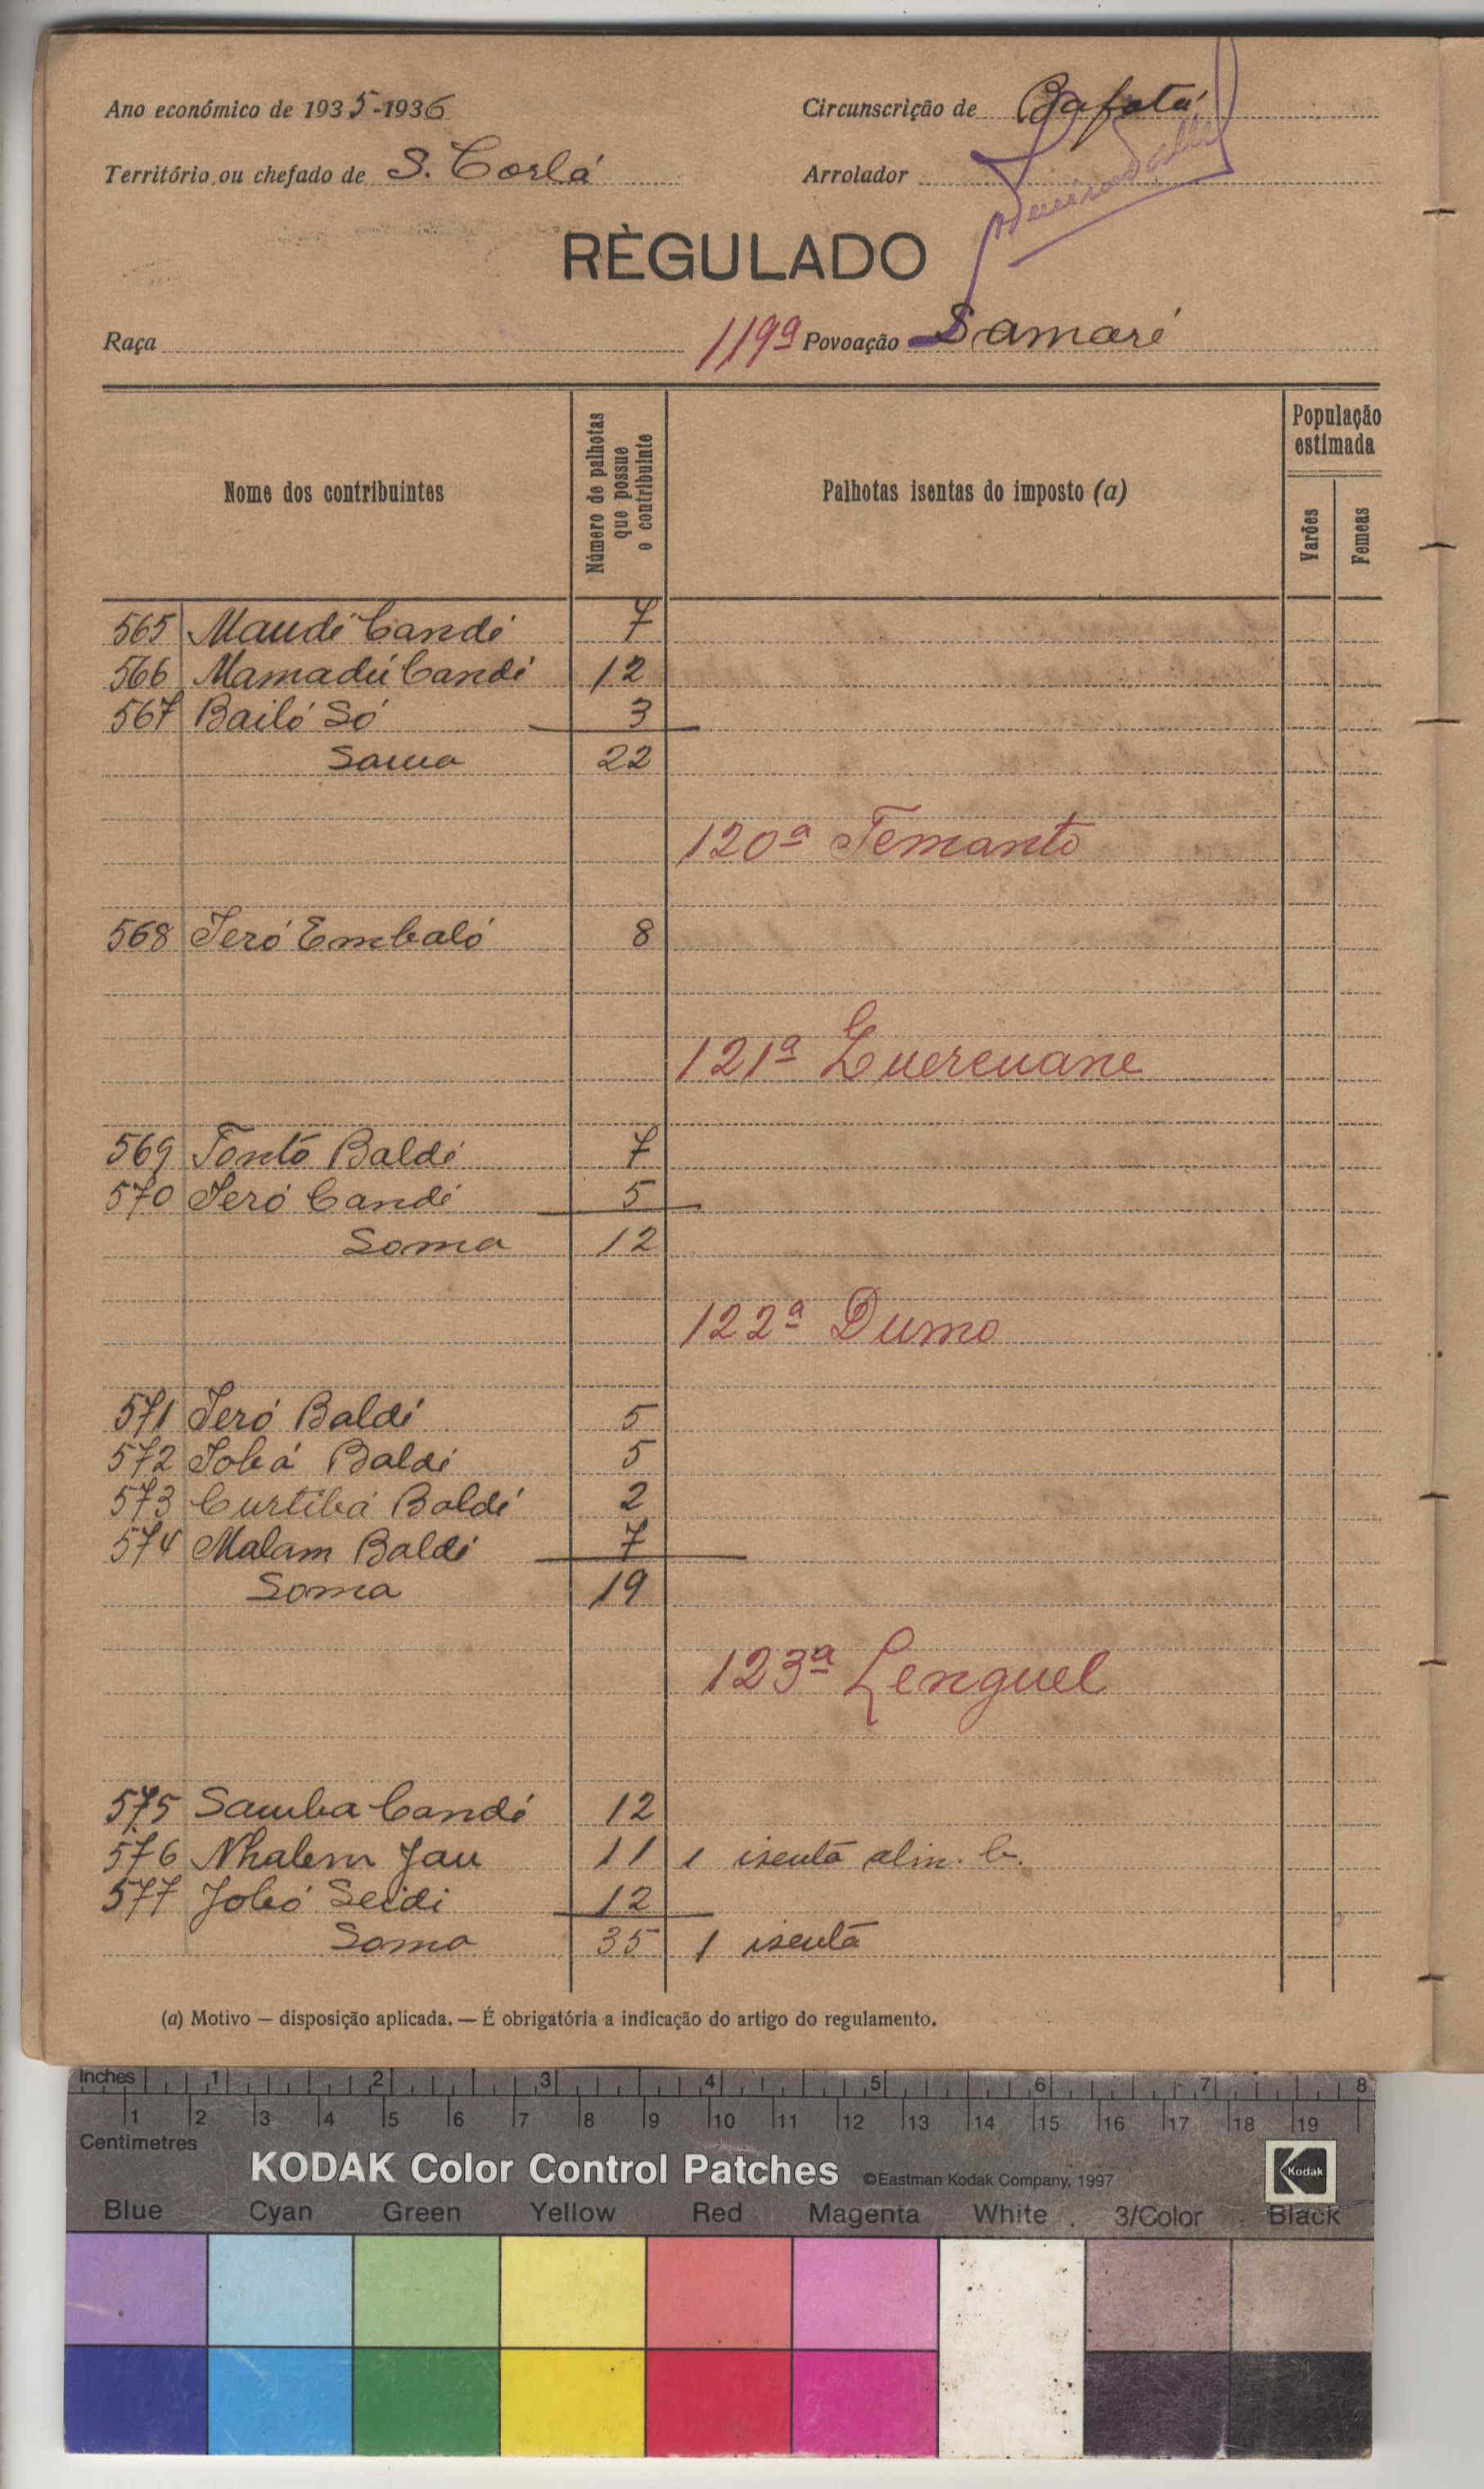 Ano económico de 1935-1936 Circunscrição de Bafatá
Território ou chefado de S. Corlá Arrolador
RÈGULADO
Raça 119ª Povoação Samaré
Nome dos contribuintes
Número de palhotas que possue o contribuinte
Palhotas isentas do imposto (a)
População estimada
Varões
Femeas
565 Maudé Candé 7
566 Mamadú Candé 12
567 Bailó Só 3
Soma 22
120ª Temanto
568 Seró Embaló 8
121ª Luercuane
569 Tontó Baldé 7
570 Seró Candé 5
Soma 12
122ª Dumo
571 Seró Baldé 5
572 Sobá Baldé 5
573 Curtibá Baldé 2
574 Malam Baldé 7
Soma 19
123ª Lenguel
575 Samba Candé 12
576 Nhalem Jau 11 1 isenta alin. b.
577 Jobó Seidi 12
Soma 35 1 isenta
(a) Motivo — disposição aplicada. — É obrigatória a indicação do artigo do regulamento.
Inches 1 2 3 4 5 6 7 8
1 2 3 4 5 6 7 8 9 10 11 12 13 14 15 16 17 18 19
Centimetres
KODAK Color Control Patches ©Eastman Kodak Company, 1997 Kodak
Blue Cyan Green Yellow Red Magenta White 3/Color Black